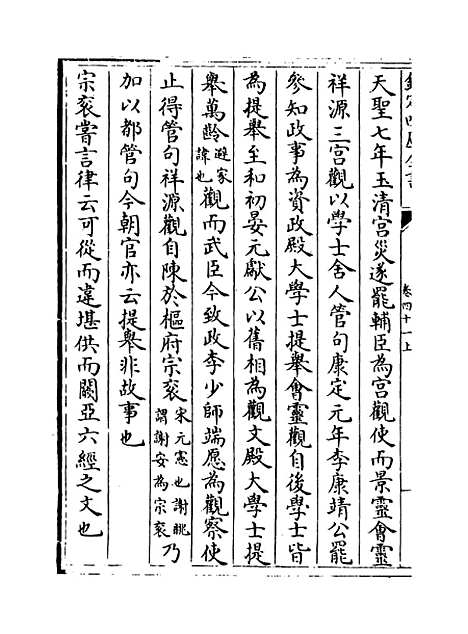 欽定四庫全書
卷四十一上
天聖七年玉清宫災遂罷輔臣為宫觀使而景靈會靈
祥源三宫觀以學士舍人管句康定元年李康靖公罷
參知政事為資政殿大學士提舉會靈觀自後學士皆
為提舉至和初晏元獻公以舊相為觀文殿大學士提
舉萬齡避家諱也觀而武臣今致政李少師端愿為觀察使
止得管句祥源觀自陳於樞府宗衮宋元憲也謝眺謂謝安為宗衮乃
加以都管句今朝官亦云提舉非故事也
宗衮嘗言律云可從而違堪供而闕亞六經之文也